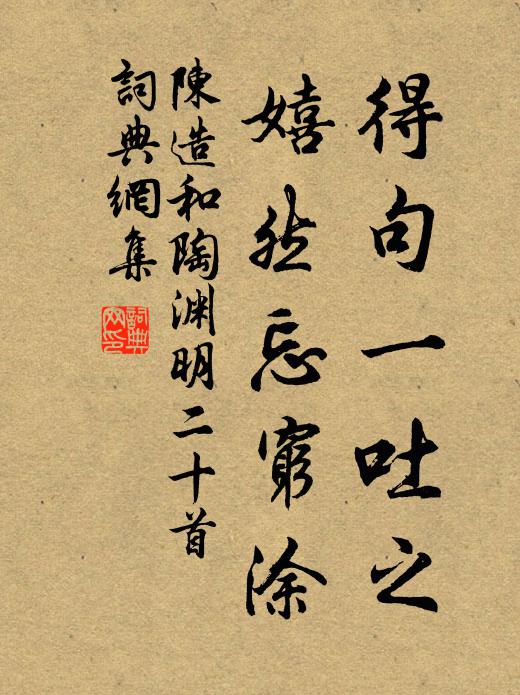 得句一吐之
嬉然忘窮涂
陳造和陶渊明二十首
詞典網集
詞典網印